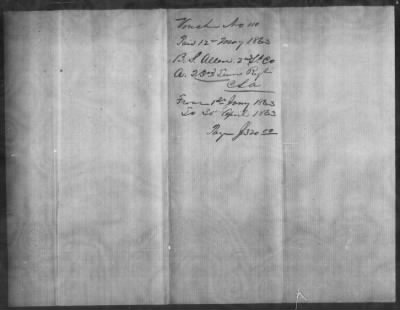 Vouch No 111
Paid 12th May 1863
B. S. Allen 2nd Lt Co
A. 23rd Tenn Regt
CSA
From 1st Jany 1863
To 30 April 1863
Pay $320 00